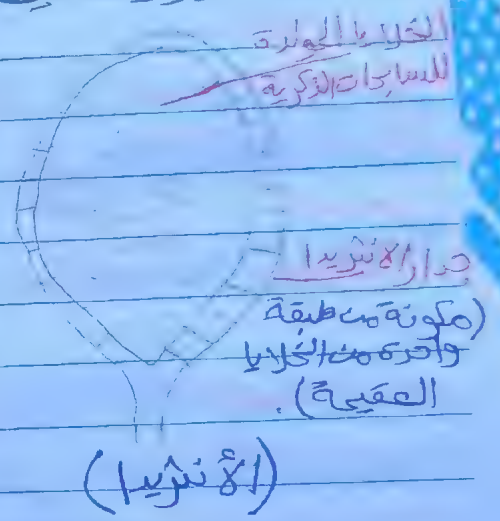 الخلايا المولدة
للسابحات الذكرية
جدار الانثريدا
(مكونة من طبقة
واحدة من الخلايا
العقيمة).
(الأنثريدا)